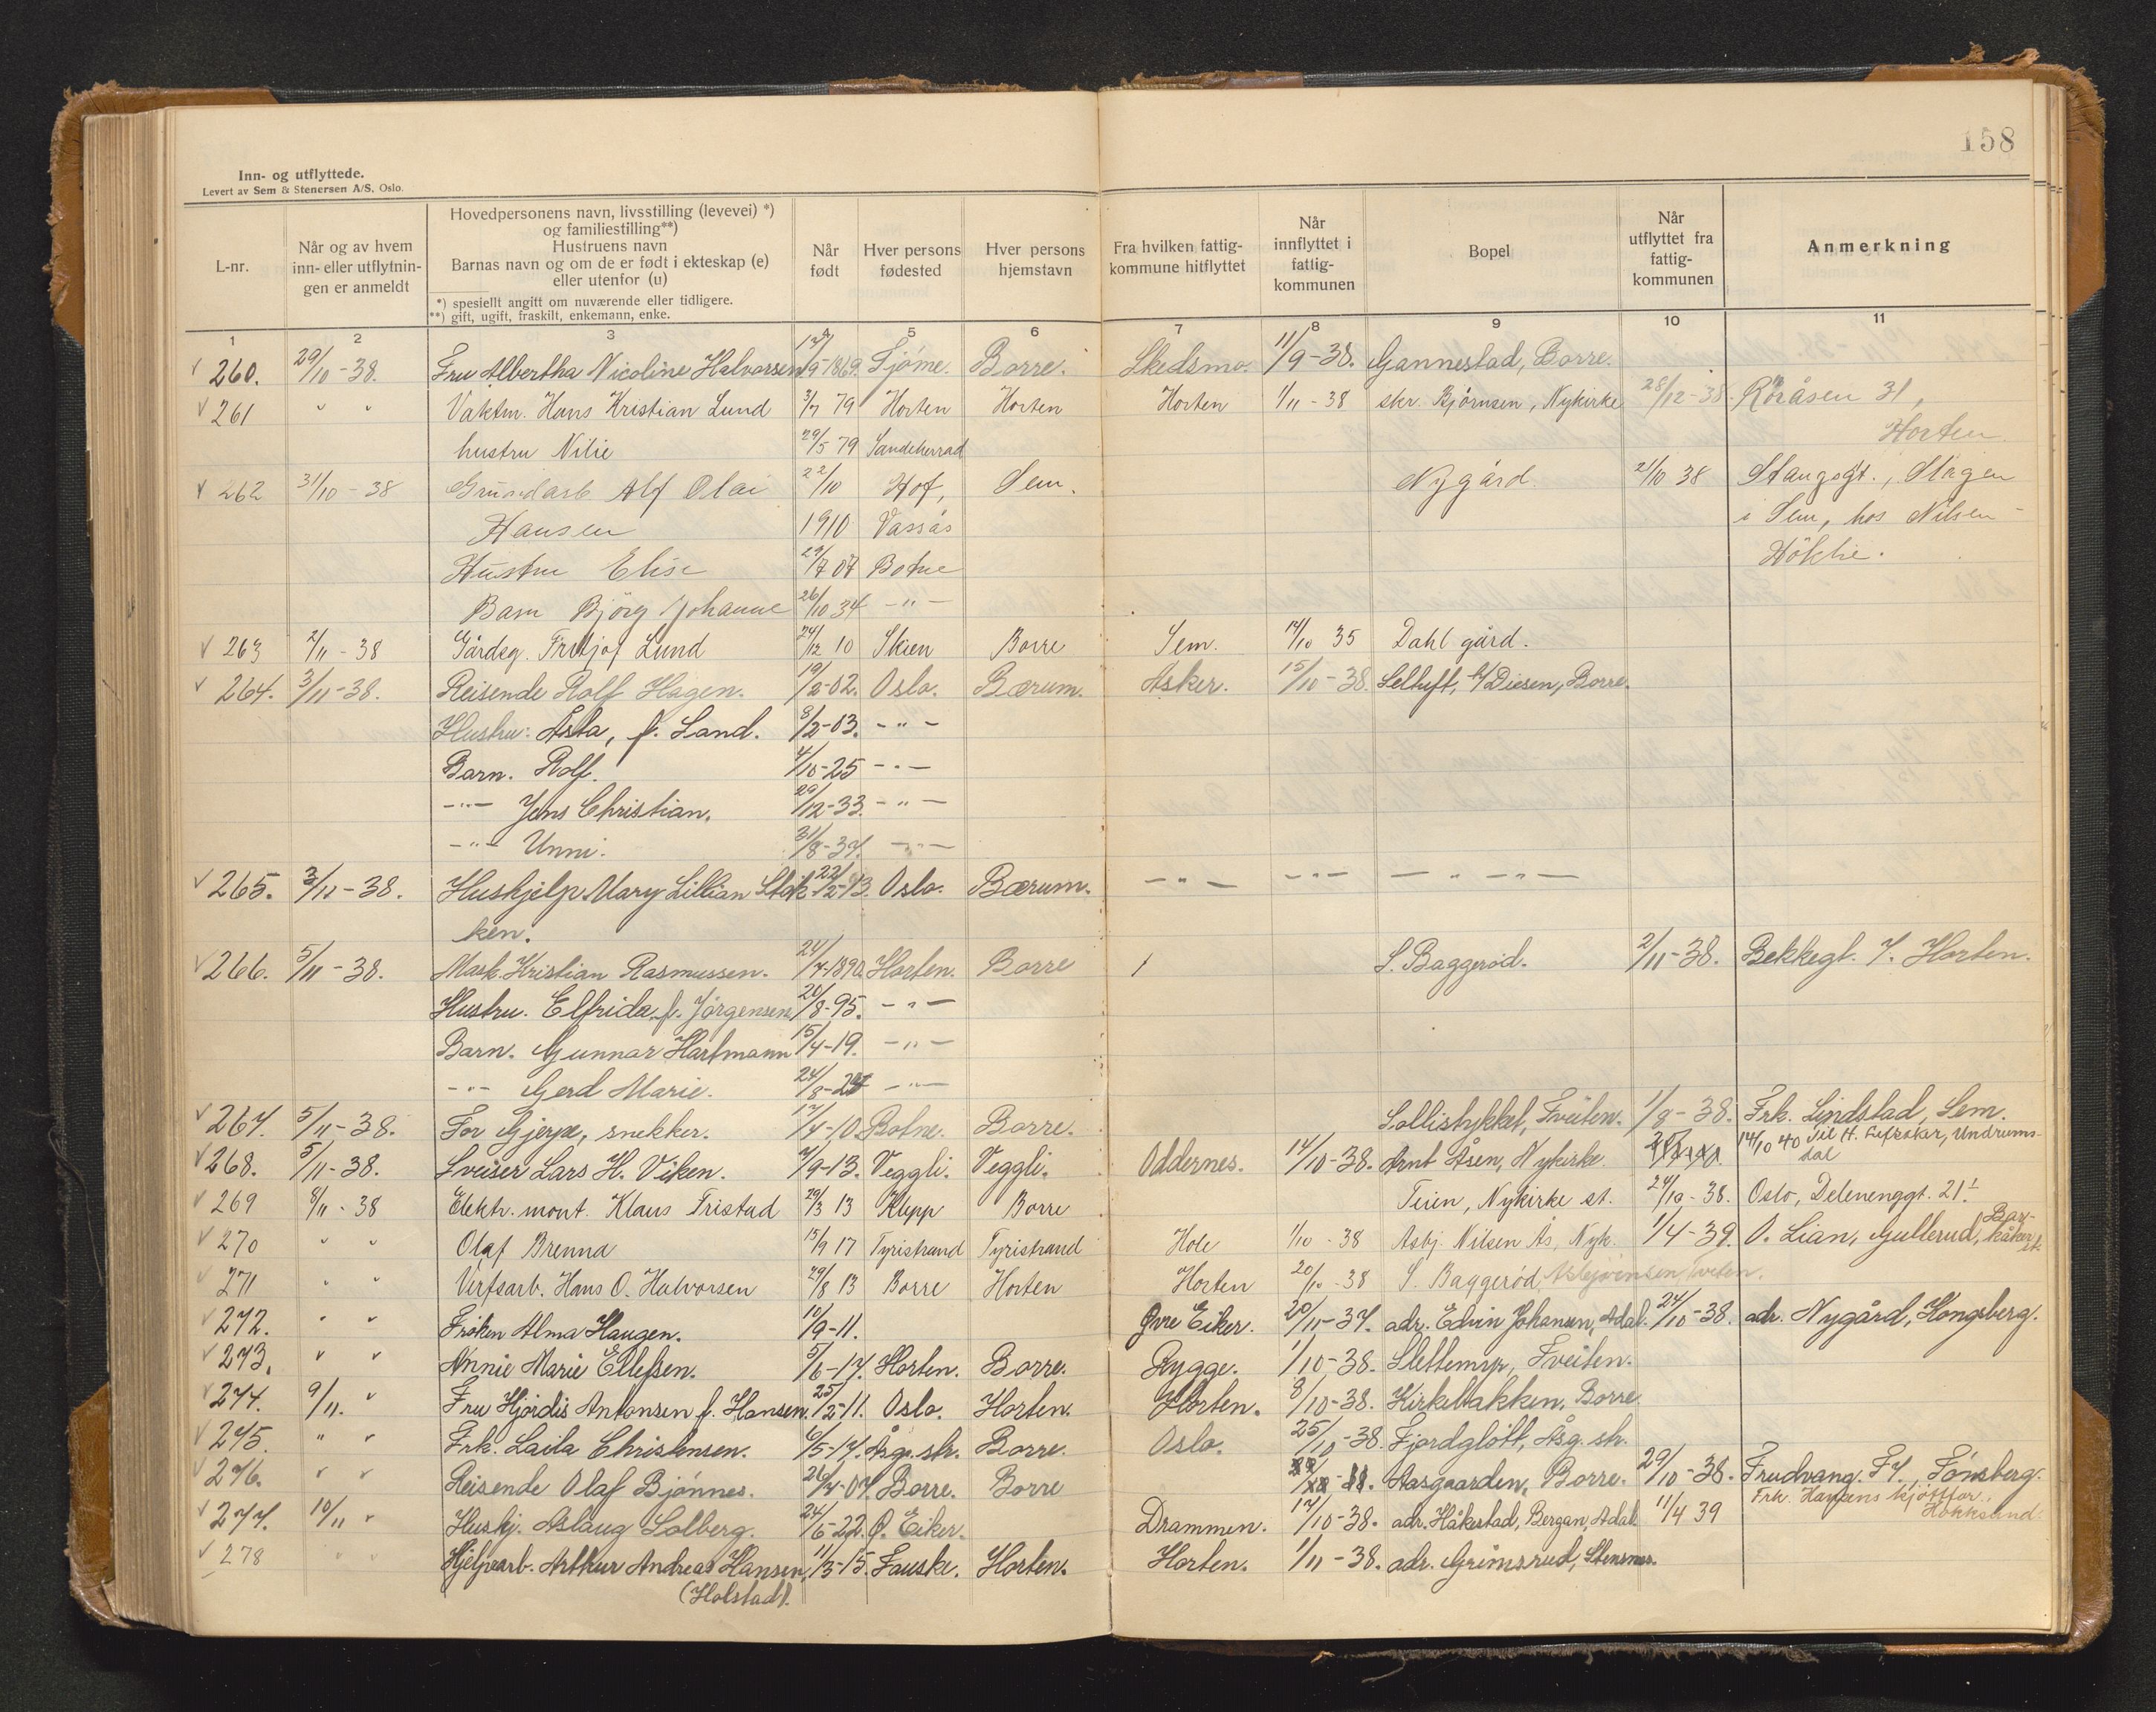 158
Inn- og utflyttede.
Levert av Sem & Stenersen A/S, Oslo.
L-nr.
Når og av hvem
inn- eller utflytnin-
gen er anmeldt
Hovedpersonens navn, livsstilling (levevei) *)
og familiestilling**)
Hustruens navn
Barnas navn og om de er født i ekteskap (e)
eller utenfor (u)
*) spesiellt angitt om nuværende eller tidligere.
**) gift, ugift, fraskilt, enkemann, enke.
Når
født
Hver persons
fødested
Hver persons
hjemstavn
Fra hvilken fattig-
kommune hitflyttet
Når
innflyttet i
fattig-
kommunen
Bopel
Når
utflyttet fra
fattig-
kommunen
Anmerkning
1 2 3 4 5 6 7 8 9 10 11
260. 29/10-38. Fru Albertha Nicoline Halvorsen 1869. Tjøme. Borre. Skedsmo. 11/9-38. Gannestad, Borre.
261 " " Vaktm. Hans Kristian Lund 3/7 79 Horten Horten Horten 1/11-38 skr. Bjørnsen, Nykirke 28/12-38 Røråsen 31,
Horten.
hustru Nilie 29/5 79 Sandeherrad
262 31/10-38 Grundarb Alf Olai 22/10 Hof, Sem. Nygård. 21/10 38 Stangsgt., Slagen
Hansen 1910 Vassås i Sem, hos Nilsen-
Hustru Elise 29/7 07 Botne
Barn Bjørg Johanne 26/10 34 -"-
263 2/11-38 Gårdeg. Fritjof Lund 24/12 10 Skien Borre Sem. 14/10 35 Dahl gård.
264. 3/11-38. Reisende Rolf Hagen. 19/2-02. Oslo. Bærum. Asker. 15/10-38. Seltuft, Diesen, Borre.
Hustru: Asta, f. Sand. 8/2-03. -"-
Barn. Rolf. 4/10-25 -"-
-"- Jens Christian. 29/12-33. -"-
-"- Unni. 31/8-37. -"-
265. 3/11-38. Hushjelp. Mary Lillian Stok- 22/2-13. Oslo. Bærum. -"- -"- -"- -"-
ken.
266. 5/11-38. Mask. Kristian Rasmussen. 24/7-1890. Horten. Borre / S. Baggerød. 2/11-38. Bekkegt. 7. Horten.
Hustru. Elfrida f. Jørgensen 20/8-95. -"-
Barn. Gunnar Hartmann 15/4-19. -"-
-"- Gerd Marie. 24/8-24 -"-
267. 5/11-38. Tor Gjerpe, snekker. 17/4-10. Botne. Borre. Sollistykket, Tveiten. 1/8-38. Frk. Lindstad, Sem.
268. 5/11-38. Sveiser Lars H. Viken. 7/9-13. Veggli. Veggli. Oddernes. 14/10-38. Arnt Åsen, Nykirke. 14/10 40 til H. Undrums-
dal
269 8/11-38 Elektr. mont. Klaus Tristad 29/3 13 Klepp Borre Teien, Nykirke st. 24/10-38. Oslo, Delenenggt. 21 I
270 " " Olaf Brenna 15/9 17 Tyristrand Tyristrand Hole 1/10-38 Asbj. Nilsen Ås, Nyk. 1/4-39. O. Lian, Gullerud, Bar-
kåker st.
271 " " Verftsarb. Hans O. Halvorsen 29/8 13 Borre Horten Horten 20/10-38 S. Baggerød,
272. " " Frøken Alma Haugen. 10/9-11. Øvre Eiker. 20/11-37. adr. Edvin Johansen, Adal. 24/10-38. adr. Nygård, Kongsberg.
273. " " Annie Marie Ellefsen. 5/6-17. Horten. Borre. Rygge. 1/10-38. Slettemyr, Tveiten.
274. 9/11. " Fru Hjørdis Antonsen f. Hansen. 25/2-11. Oslo. Horten. Horten. 8/10-38. Kirkebakken, Borre.
275. " " Frk. Laila Christensen. 6/5-17. Åsg. str. Borre. Oslo. 25/10-38. Fjordgløtt, Åsg. str.
276. " " Reisende Olaf Bjønnes. 26/4-07. Borre. Borre Aasgaarden, Borre. 29/10-38. Frudvang. F7., Tønsberg.
277. 10/11 " Hushj. Aslaug Solberg. 24/6-22. Ø. Eiker. Drammen. 17/10-38. adr. Håkestad, Bergan, Adal. 11/4 39 Frk. Hansens kjøttfor.,
Hokksund.
278 " " Hjelpearb. Arthur Andreas Hansen, 11/3-15. Fauske. Horten. Horten. 1/11-38. adr. Grimsrud, Stensnes.
(Holstad).